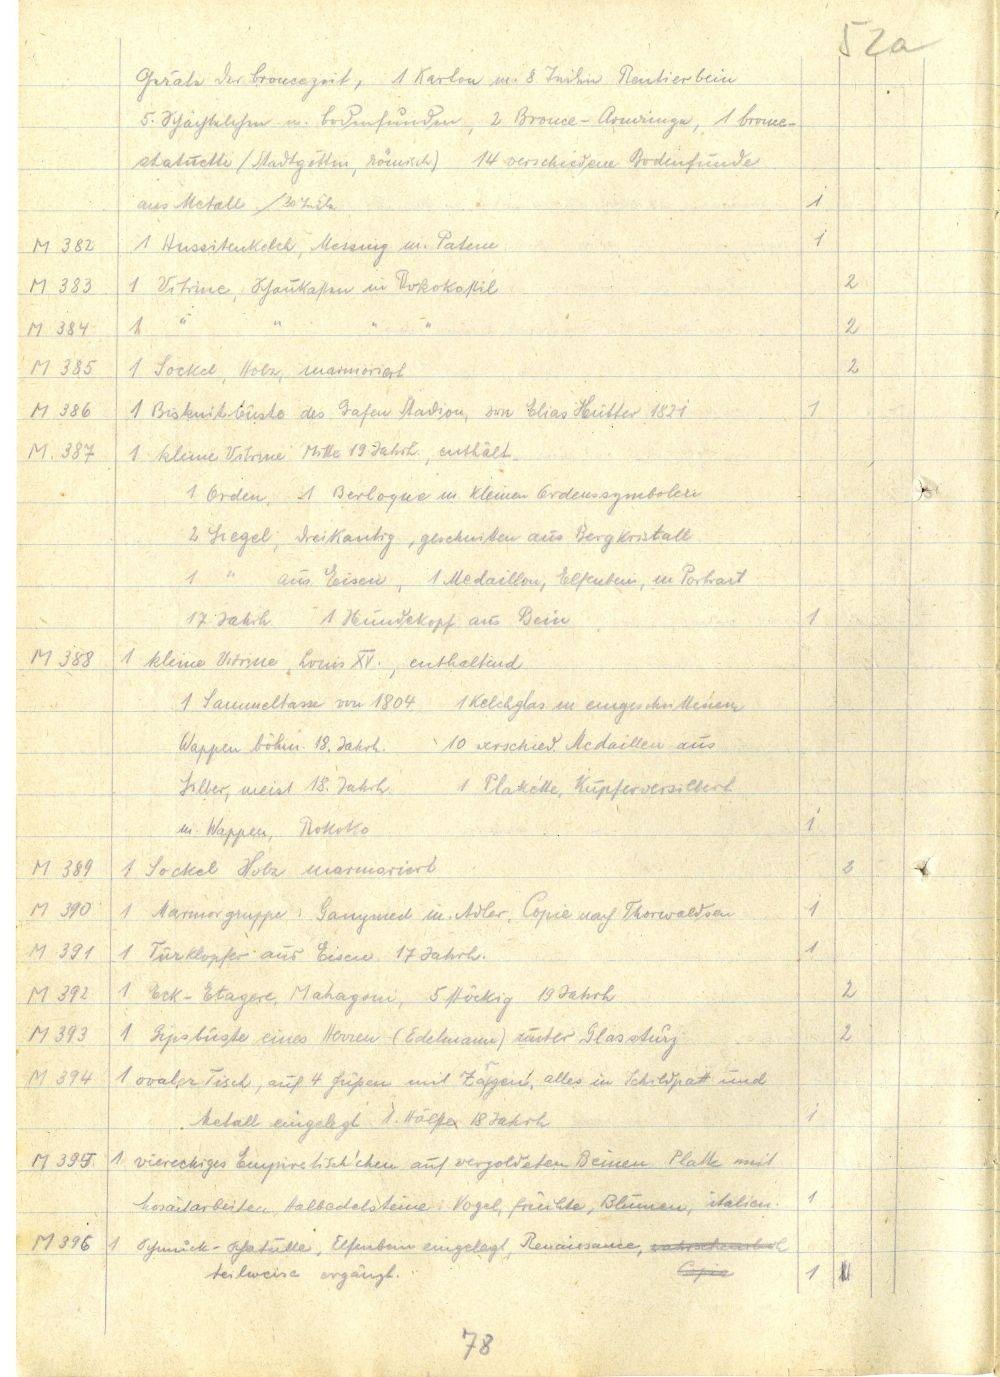 52a
Geräte der broncezeit, 1 Karton m. 8 Rentierbein
5. Schächtelchen m. bodenfunden, 2 Bronce-Armringe, 1 bronce-
statuette (Stadtgöttin, römisch) 14 verschiedene Bodenfunde
aus Metall 1
M 382 1 Hussitenkelch, Messing m. Patene 1
M 383 1 Vitrine, Schaukasten in Rokokostil 2
M 384 1 " " " " 2
M 385 1 Sockel, Holz, marmoriert 2
M 386 1 Biskuitbüste des Grafen Stadion, von Elias Hütter 1821 1
M. 387 1 kleine Vitrine Mitte 19 Jahrh., enthält
1 Orden, 1 Berloque m. kleinen Ordenssymbolen
2 Siegel, dreikantig, geschnitten aus Bergkristall
1 " aus Eisen, 1 Medaillon, Elfenbein, m Portrait
17 Jahrh 1 Hundekopf aus Bein 1
M 388 1 kleine Vitrine, Louis XV., enthaltend
1 Sammeltasse von 1804 1 Kelchglas m eingeschnittenem
Wappen böhm. 18. Jahrh. 10 verschied. Medaillen aus
Silber, meist 18. Jahrh. 1 Plakette, Kupferversilbert
m. Wappen, Rokoko 1
M 389 1 Sockel Holz marmoriert 2
M 390 1 Marmorgruppe: Ganymed m. Adler, Copie nach Thorwaldsen 1
M 391 1 Türklopfer aus Eisen 17 Jahrh. 1
M 392 1 Eck-Etagere, Mahagoni, 5 stöckig 19 Jahrh 2
M 393 1 Gipsbüste eines Herren (Edelmann) unter Glassturz 2
M 394 1 ovaler Tisch, auf 4 Füßen mit alles in Schildpatt und
Metall eingelegt 1. Hälfte 18 Jahrh 1
M 395 1 viereckiges Empiretischchen auf vergoldeten Beinen Platte mit
Mosaikarbeiten, Halbedelsteine: Vogel, früchte, Blumen, italien. 1
M 396 1 Schmuck-Schatulle, Elfenbein eingelegt, Renaissance, wahrscheinlich
teilweise ergänzt. Copie 1
78